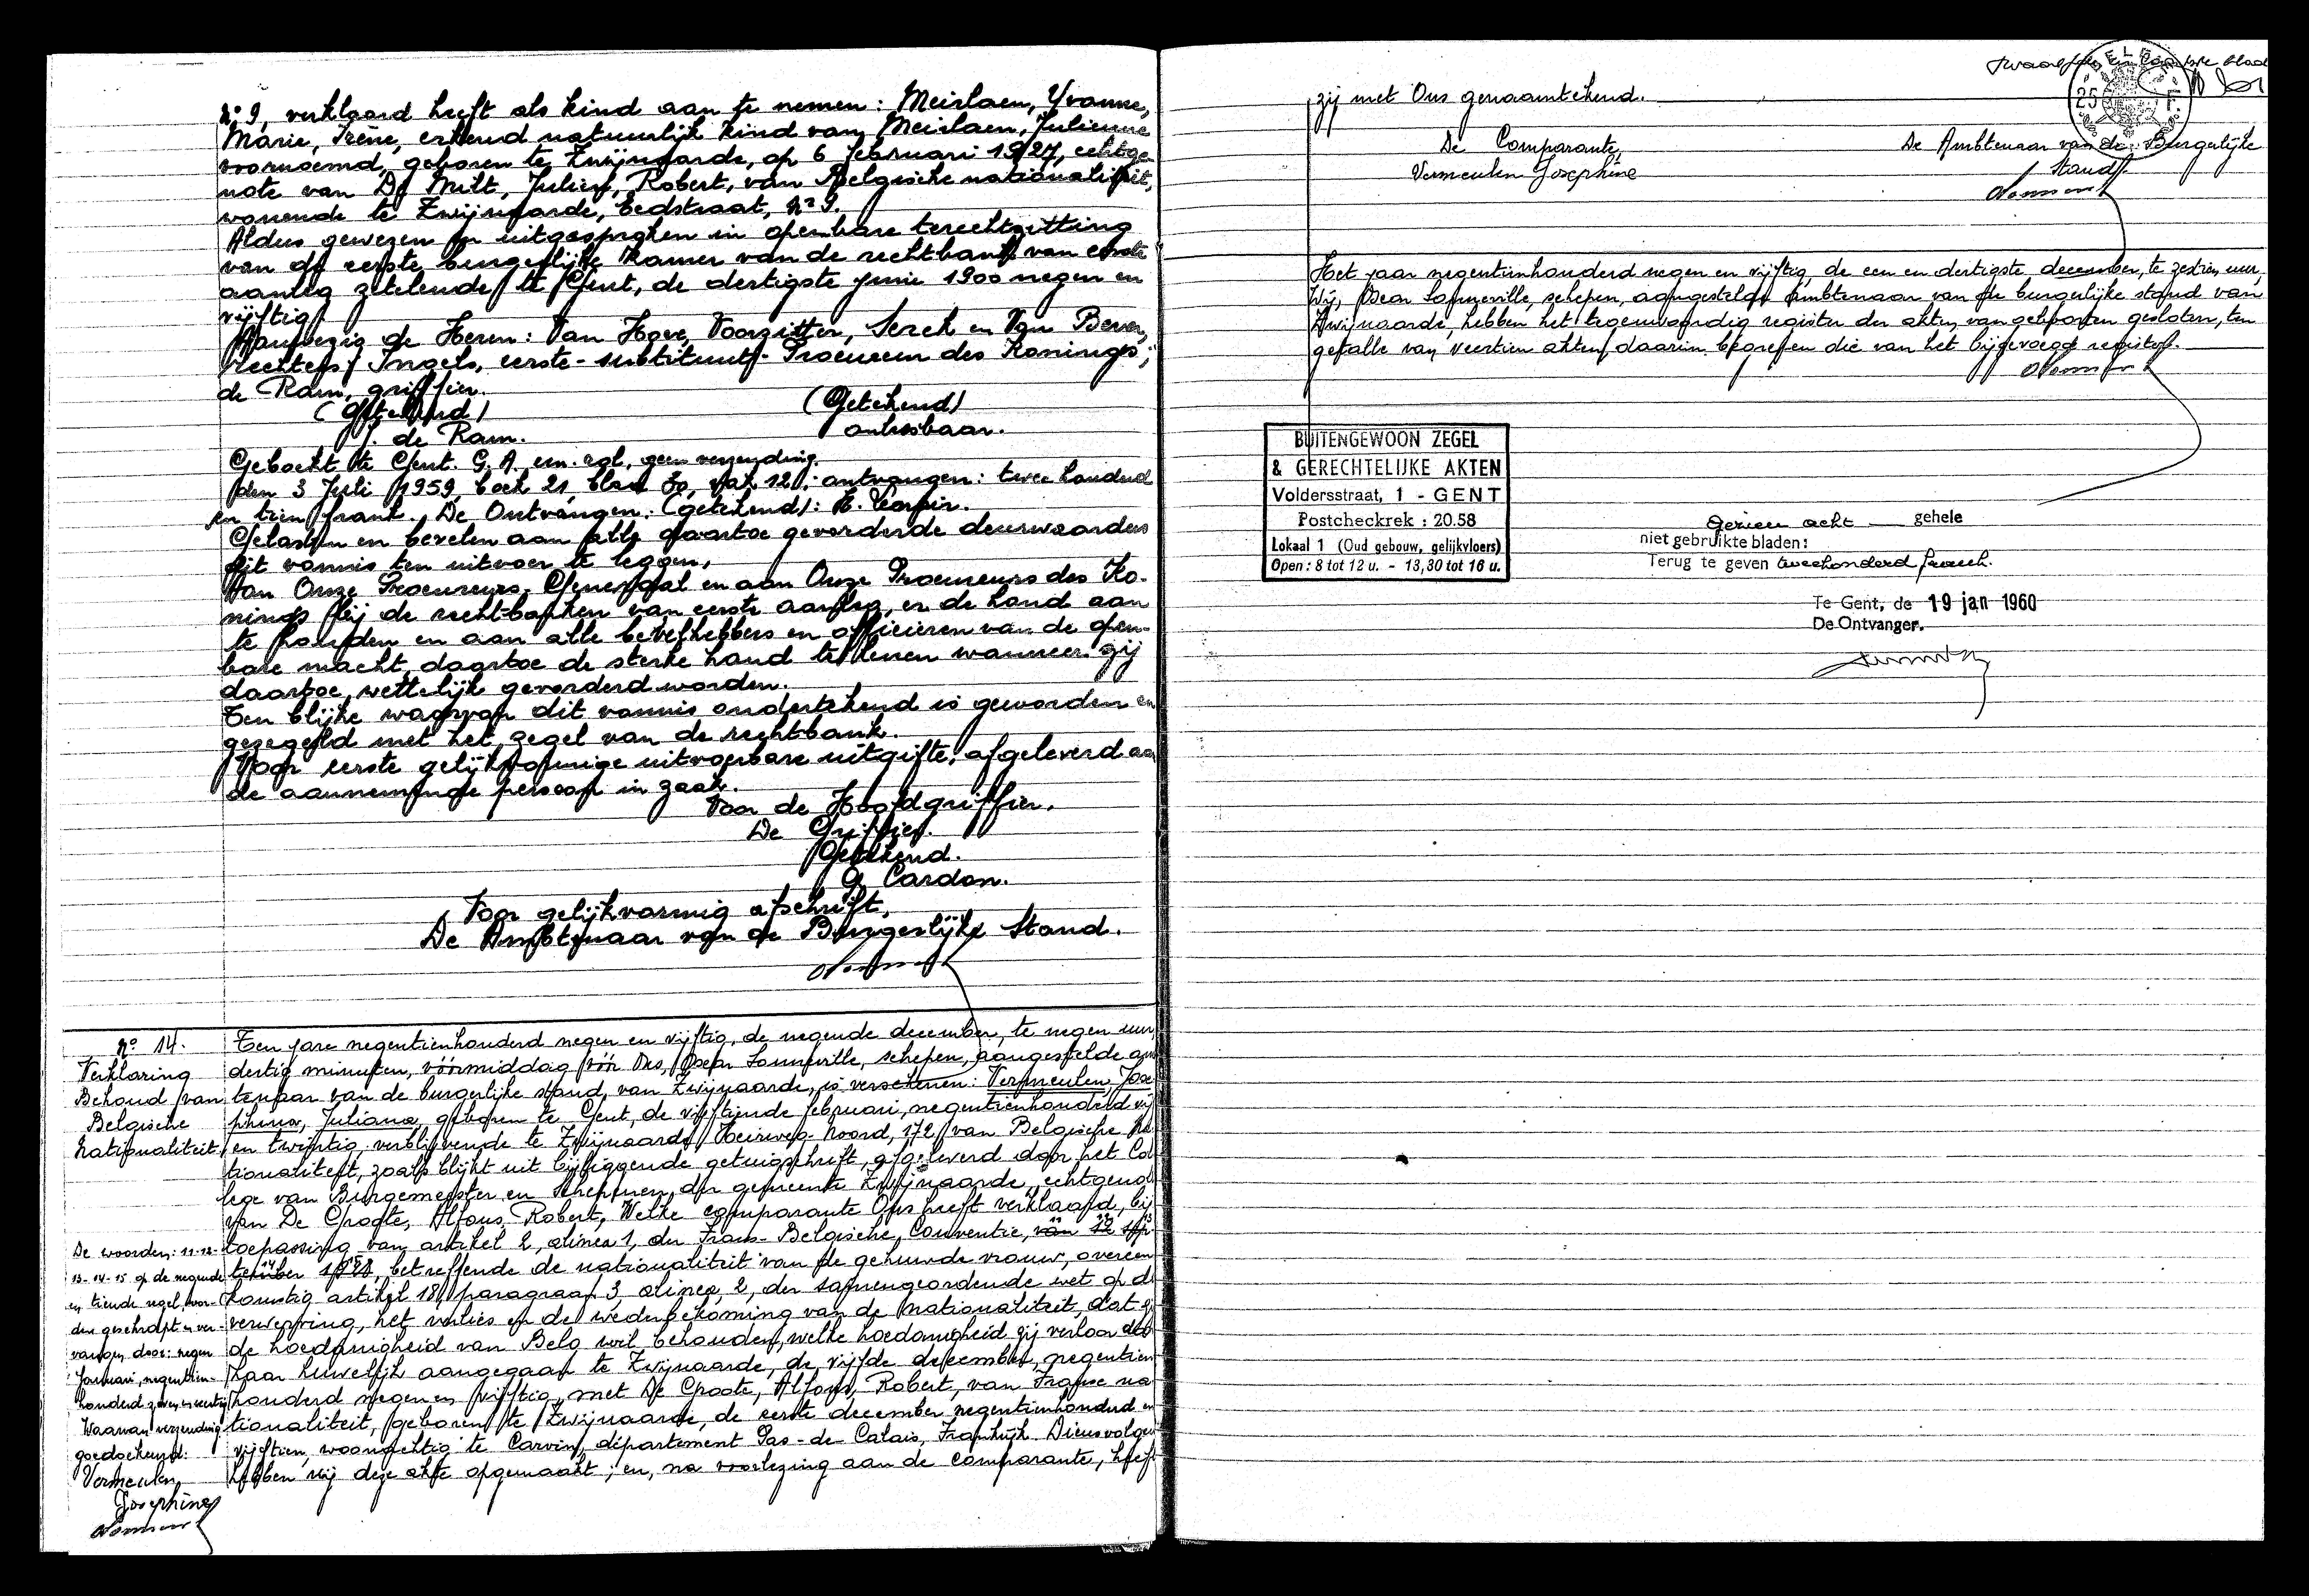 n° 9, verklaard heeft als kind aan te nemen: Meirlaen, Yvonne,
Marie, Irène, erkend natuurlijk kind van Meirlaen, Julienne
voornoemd, geboren te Zwijnaarde, op 6 februari 1927, echtge-
note van De Mult, Julien, Robert, van Belgische nationaliteit,
wonende te Zwijnaarde, Eedstraat, n° 9.
Aldus gewezen en uitgesproken in openbare terechtzitting
van de eerste burgerlijke kamer van de rechtbank van eerste
aanleg zetelende te Gent, de dertigste juni 1900 negen en
vijftig.
Aanwezig de Heren: Van Hove, Voorzitter, Serck en Van Bever,
Rechters; Ingels, eerste-substituut-Procureur des Konings;
de Ram, griffier.
(Getekend) (Getekend)
J. de Ram. onleesbaar.
Geboekt te Gent. G.A. een rol, geen verzending.
den 3 Juli 1959, boek 21, blad 30, vak 12. ontvangen: twee honderd
en tien frank. De Ontvanger: (getekend):
Gelasten en bevelen aan alle daartoe gevorderde deurwaarders
dit vonnis ten uitvoer te leggen,
Aan Onze Procureurs-Generaal en aan Onze Procureurs des Ko-
nings bij de recht-banken van eerste aanleg, er de hand aan
te houden en aan alle bevelhebbers en officieren van de open-
bare macht, daartoe de sterke hand te lenen wanneer zij
daartoe wettelijk gevorderd worden.
Ten blijke waarvan dit vonnis ondertekend is geworden en
gezegeld met het zegel van de rechtbank.
Voor eerste gelijkvormige uitvoerbare uitgifte, afgeleverd aan
de aannemende persoon in zaak.
Voor de Hoofdgriffier.
De Griffier.
Getekend.
G. Cardon.
Voor gelijkvormig afschrift,
De Ambtenaar van de Burgerlijke Stand.
n° 14.
Verklaring
Behoud van
Belgische
Nationaliteit.
De woorden: 11-12-
13-14-15 op de negende
en tiende regel wor-
den geschrapt en ver-
vangen door: negen
Januari, negentien-
honderd zeven en veertig
Waarvan verzending
goedgekeurd:
Vermeulen
Josephine
Ten jare negentienhonderd negen en vijftig, de negende december, te negen uur,
dertig minuten, vóórmiddag vóór Ons, Oscar Lanneville, schepen, aangestelde am
tenaar van de burgerlijke stand, van Zwijnaarde, is verschenen: Vermeulen, Jose
phina, Juliana, geboren te Gent, de vijftiende februari, negentienhonderd vij
en twintig, verblijvende te Zwijnaarde, Heirweg-Noord, 172, van Belgische Na
tionaliteit, zoals blijkt uit bijliggende getuigschrift, afgeleverd door het Col
lege van Burgemeester en Schepenen der gemeente Zwijnaarde, echtgenot
van De Groote, Alfons, Robert, Welke comparante Ons heeft verklaard, bij
toepassing van artikel 2, alinea 1, der Frans-Belgische Conventie, van 12 sep
tember 1928, betreffende de nationaliteit van de gehuwde vrouw, overeen
komstig artikel 18, paragraaf 3, alinea 2, der samengeordende wet op de
verwerving, het verlies en de wederbekoming van de nationaliteit, dat zij
de hoedanigheid van Belg wil behouden, welke hoedanigheid zij verloor doo
haar huwelijk aangegaan te Zwijnaarde, de vijfde december, negentien
honderd negen en vijftig, met De Groote, Alfons, Robert, van Franse na
tionaliteit, geboren te Zwijnaarde, de eerste december negentienhonderd en
vijftien, woonachtig te Carvin, département Pas-de Calais, Frankrijk. Dienvolgen
hebben wij deze akte opgemaakt; en, na voorlezing aan de comparante, heeft
blad
25 F.
zij met Ons genaamtekend.
De Comparante, De Ambtenaar van de Burgerlijke
Vermeulen Josephine Stand.
Het jaar negentienhonderd negen en vijftig, de een en dertigste december, te zestien uur,
Wij, Oscar Lanneville, schepen, aangestelde Ambtenaar van de burgerlijke stand van
Zwijnaarde, hebben het tegenwoordig register der akten van geboorten gesloten, ten
getalle van veertien akten, daarin begrepen die van het bijgevoegd register.
BUITENGEWOON ZEGEL
& GERECHTELIJKE AKTEN
Voldersstraat, 1 - GENT
Postcheckrek : 20.58
Lokaal 1 (Oud gebouw, gelijkvloers)
Open : 8 tot 12 u. - 13,30 tot 16 u.
Gezien acht gehele
niet gebruikte bladen:
Terug te geven tweehonderd franck.
Te Gent, de 19 jan 1960
De Ontvanger.